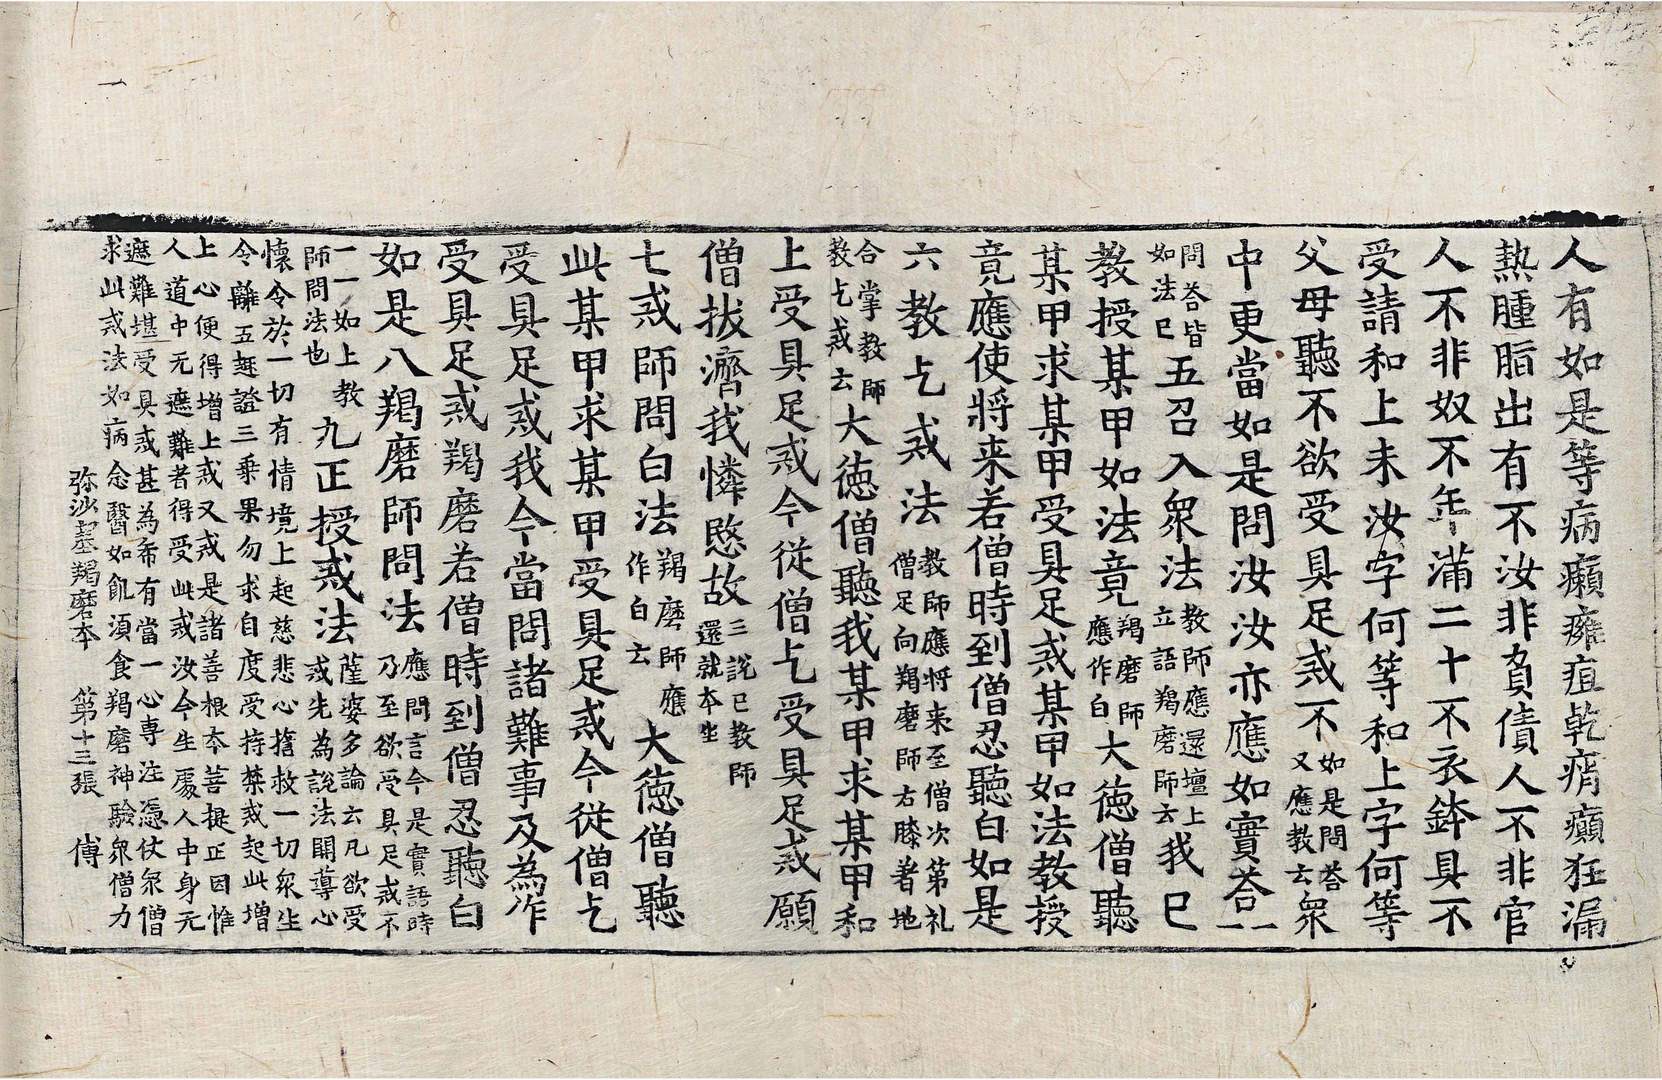 人有如是等病癩癰疽乾痟癲狂漏
熱腫脂出有不汝非負債人不非官
人不非奴不不年滿二十不衣鉢具不
受請和上未汝字何等和上字何等
父母聽不欲受具足戒不如是問荅又應教云衆
中更當如是問汝汝亦應如實荅一一
問荅皆如法已五召入衆法教師應還壇上立語羯磨師云我已
教授某甲如法竟羯磨師應作白大德僧聽
某甲求某甲受具足戒某甲如法教授
竟應使將来若僧時到僧忍聽白如是
六教乞戒法教師應將来至僧次第礼僧足向羯磨師右膝著地
合掌教師教乞戒云大德僧聽我某甲求某甲和
上受具足戒今從僧乞受具足戒願
僧拔濟我憐愍故三說已教師還就本坐
七戒師問白法羯磨師應作白云大德僧聽
此某甲求某甲受具足戒今從僧乞
受具足戒我今當問諸難事及為作
受具足戒羯磨若僧時到僧忍聽白
如是八羯磨師問法應問言今是實語時乃至欲受具足戒不
一一如上教師問法也九正授戒法薩婆多論云凡欲受戒先為說法開導心
懷令於一切有情境上起慈悲心捨救一切衆生
令離五無證三乗果勿求自度受持禁戒起此增
上心便得增上戒又戒是諸善根本菩提正因惟
人道中无遮難者得受此戒汝今生處人中身无
遮難堪受具戒甚為希有當一心專注憑仗衆僧
求此戒法如病念醫如飢須食羯磨神驗衆僧力
弥沙塞羯磨本　第十三張　傅